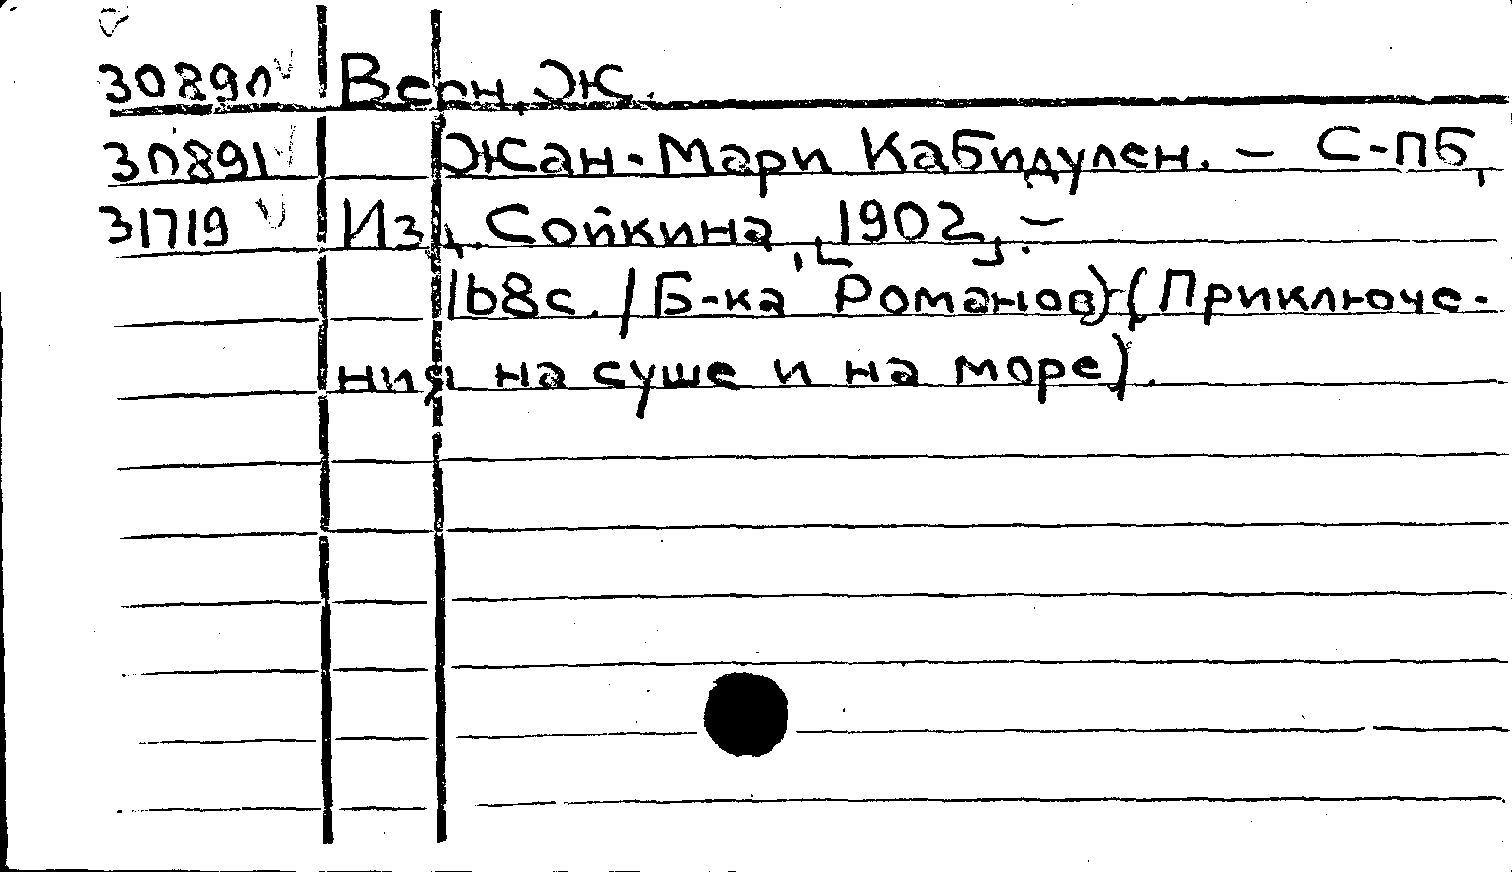 30890 Верн, Ж.
30891 Жан-Мари Кабидулен. – С-ПБ,
31719 Изд. Сойкина, [1902]. –
168с. /Б-ка Романов) (Приключе-
ния на суше и на море).